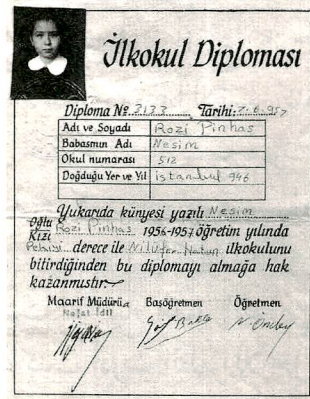 İlkokul Diploması
Diploma № 3133 Tarihi: 7.6.957
Adı ve Soyadı Rozi Pinhas
Babasının Adı Nesim
Okul numarası 512
Doğduğu Yer ve Yıl istanbul 946
Yukarıda künyesi yazılı Nesim
Oğlu
Kızı Rozi Pinhas 1956-1957 öğretim yılında
Pekiyi derece ile Nilüfer Hatun ilkokulunu
bitirdiğinden bu diplomayı almağa hak
kazanmıştır.
Maarif Müdürü Başöğretmen Öğretmen